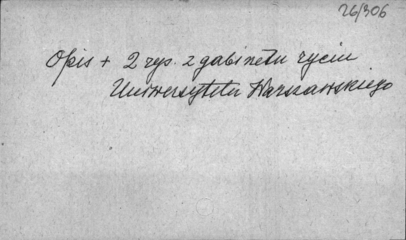 26/306
Opis + 2 rys. z gabinetu rycin
Uniwersytetu Warszawskiego